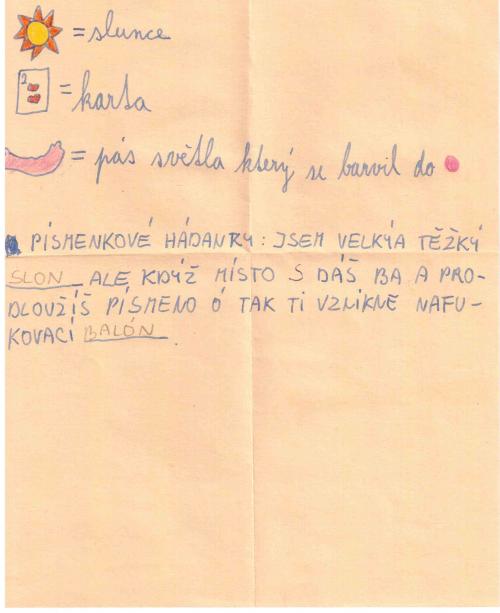 = slunce
2
= karta
= pás světla který se barvil do
PÍSMENKOVÉ HÁDANKY: JSEM VELKÝA TĚŽKÝ
SLON ALE KDYŽ MÍSTO S DÁŠ BA A PRO-
DLOUŽÍŠ PÍSMENO Ó TAK TI VZNIKNE NAFU-
KOVACÍ BALÓN.